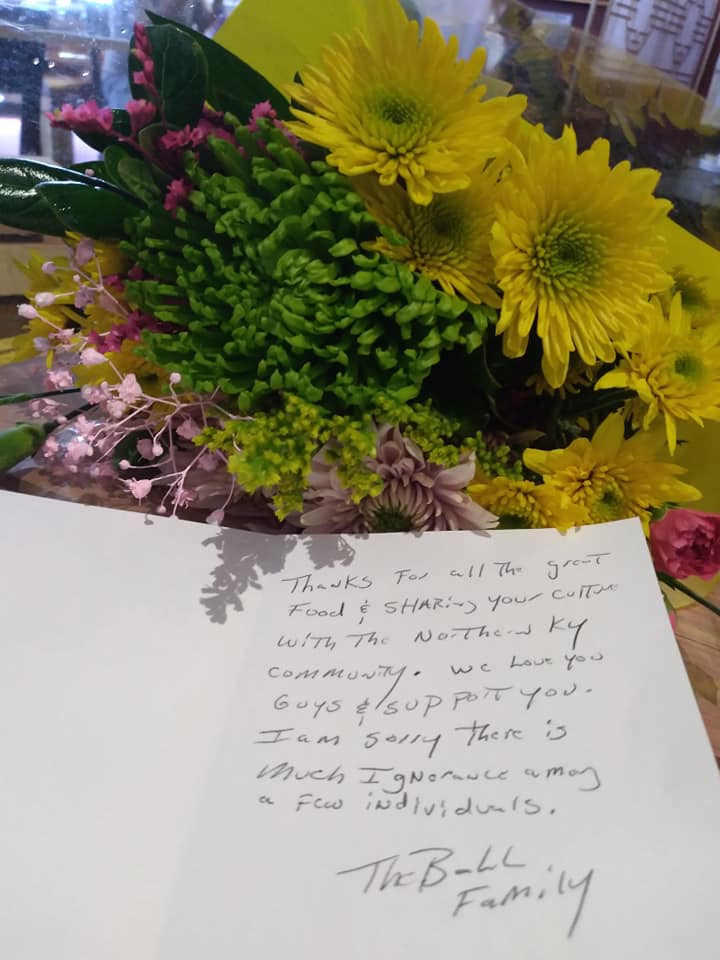 Thanks For all The great
Food & SHARing your culture
with The Northern Ky
community. we Love you
Guys & support you.
I am sorry there is
Much Ignorance among
a few individuals.
The Ball
Family